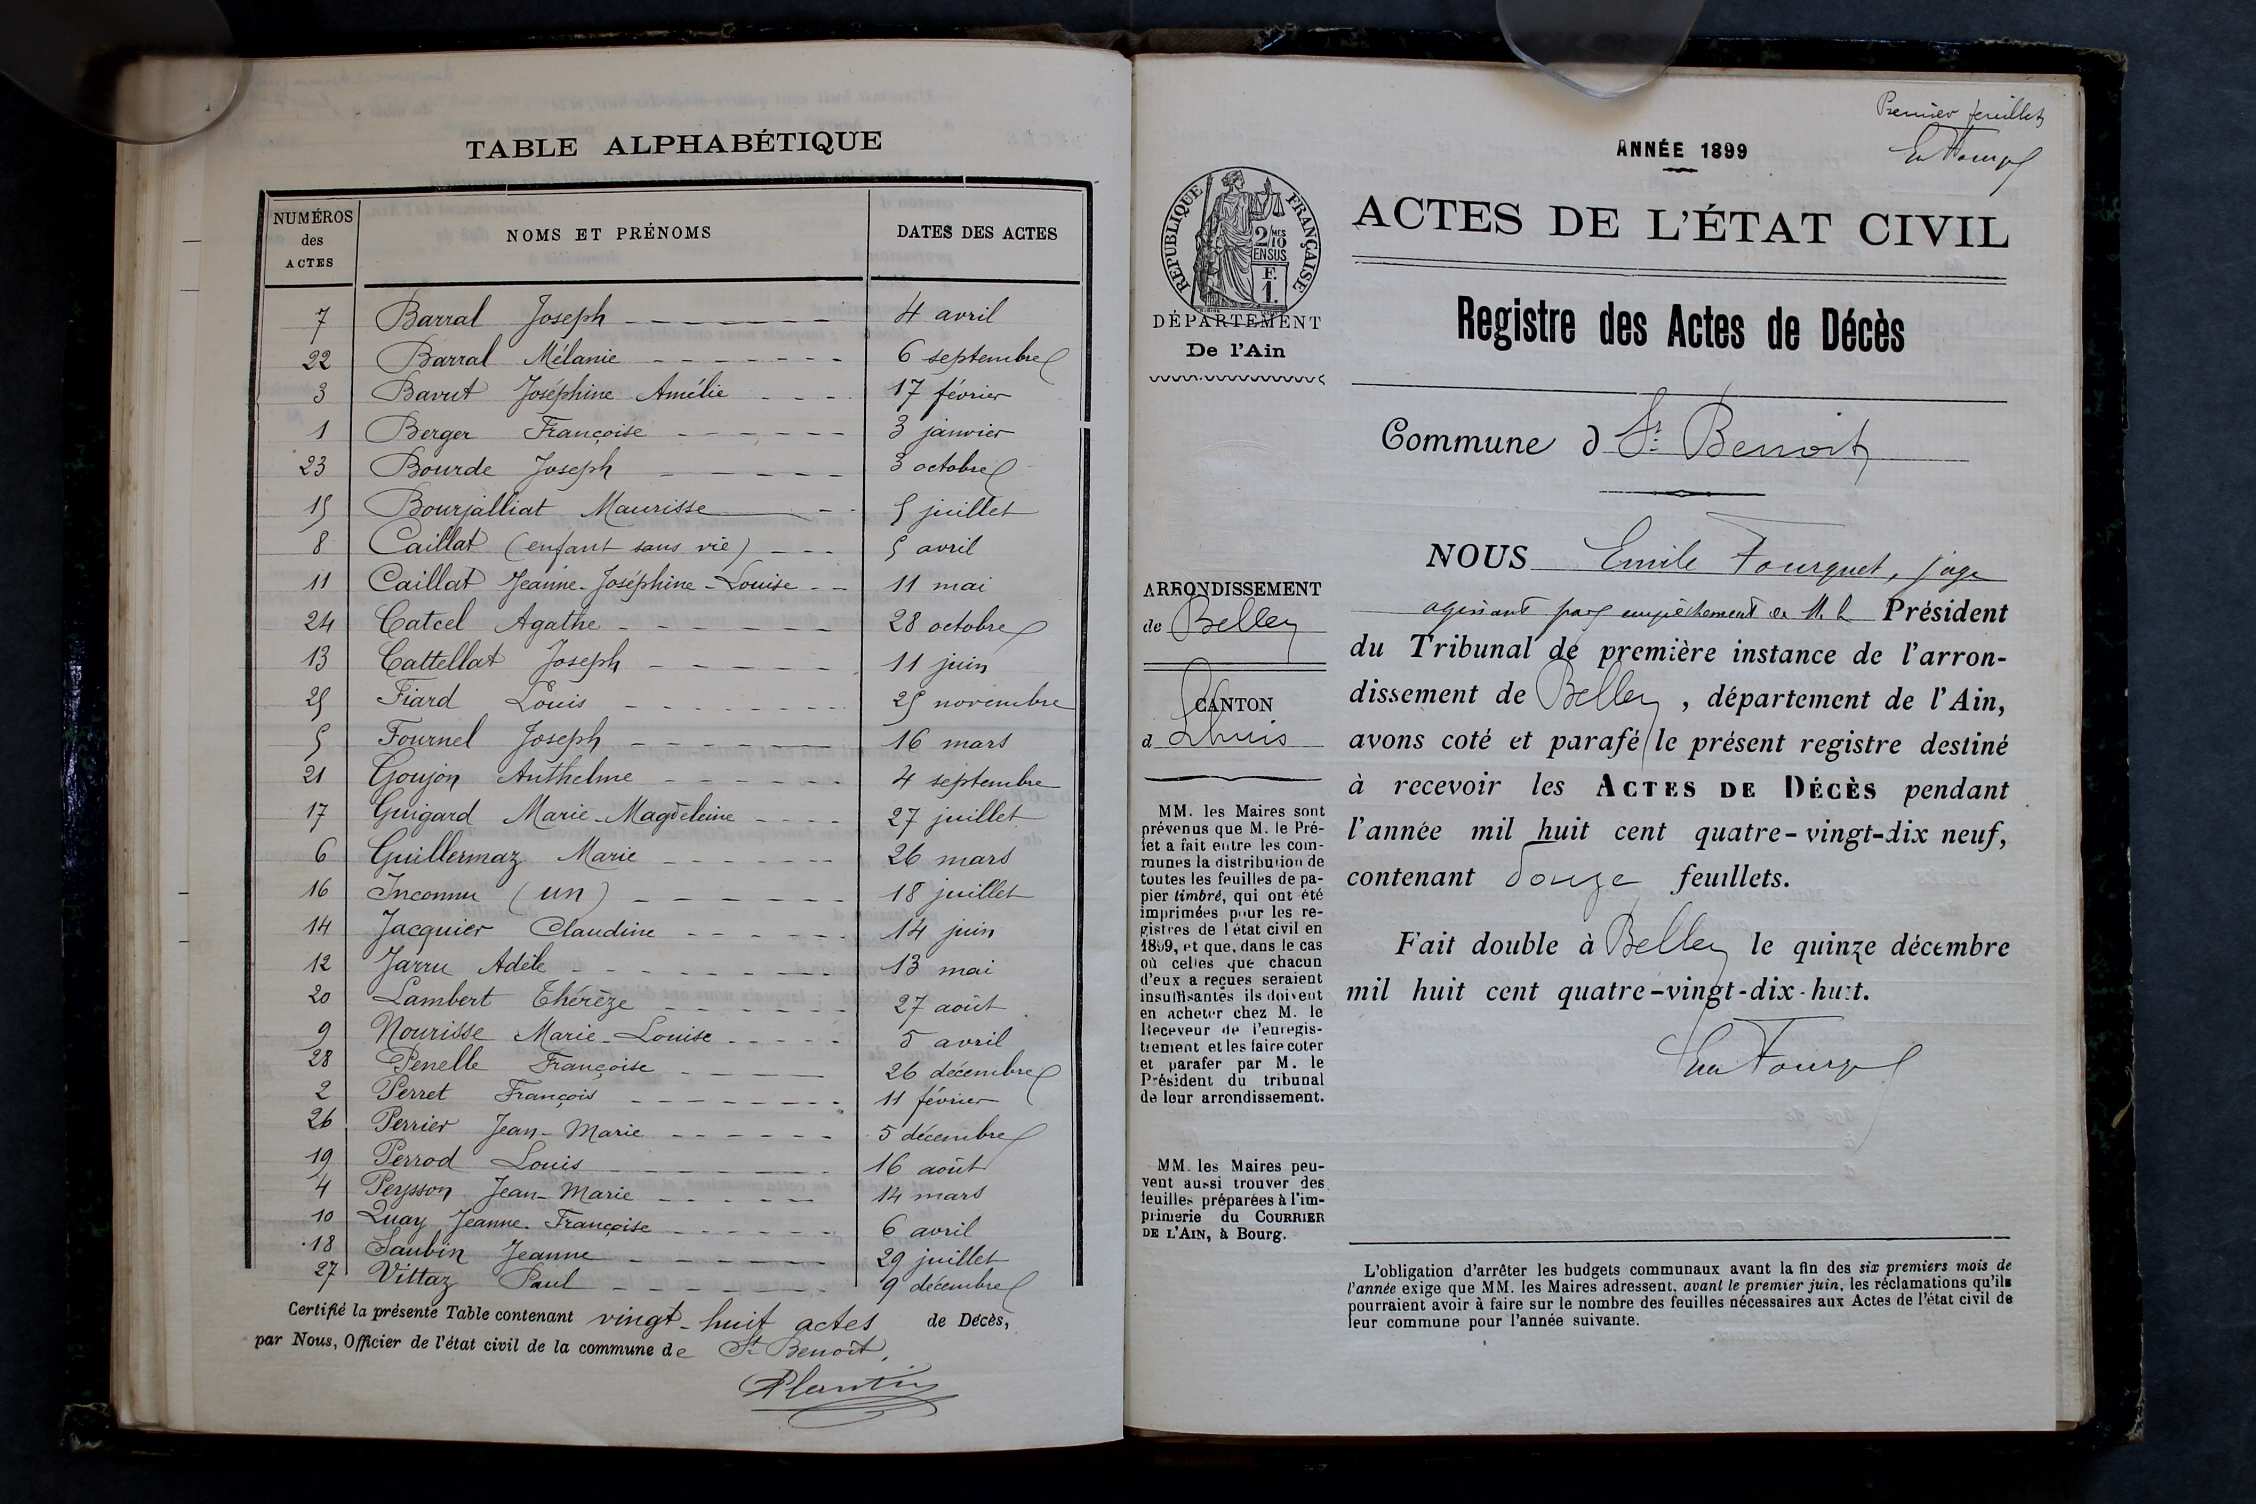 TABLE ALPHABÉTIQUE
NUMÉROS des ACTES NOMS ET PRÉNOMS DATES DES ACTES
7 Barral Joseph 4 avril
22 Barral Mélanie 6 septembre
3 Bavut Joséphine Amélie 17 février
1 Berger Françoise 3 janvier
23 Bourde Joseph 3 octobre
15 Bourjalliat Maurisse 5 juillet
8 Caillat (enfant sans vie) 5 avril
11 Caillat Jeanne-Joséphine-Louise 11 mai
24 Catcel Agathe 28 octobre
13 Cattellat Joseph 11 juin
25 Fiard Louis 25 novembre
5 Fournel Joseph 16 mars
21 Goujon Anthelme 4 septembre
17 Guigard Marie-Magdeleine 27 juillet
6 Guillermaz Marie 26 mars
16 Inconnu (un) 18 juillet
14 Jacquier Claudine 14 juin
12 Jarru Adèle 13 mai
20 Lambert Thérèze 27 août
9 Nourisse Marie-Louise 5 avril
28 Penelle Françoise 26 décembre
2 Perret François 11 février
26 Perrier Jean-Marie 5 décembre
19 Perrod Louis 16 août
4 Peysson Jean-Marie 14 mars
10 Quay Jeanne-Françoise 6 avril
18 Saubin Jeanne 29 juillet
27 Vittaz Paul 9 décembre
Certifié la présente Table contenant vingt-huit actes de Décès,
par Nous, Officier de l'état civil de la commune de St Benoît,
Plantin
Premier feuillet
ANNÉE 1899
RÉPUBLIQUE FRANÇAISE
2/10 MES
EN SUS
F.
1.
DÉPARTEMENT
De l'Ain
ARRONDISSEMENT
de Belley
CANTON
d Lhuis
MM. les Maires sont
prévenus que M. le Pré-
fet a fait entre les com-
munes la distribution de
toutes les feuilles de pa-
pier timbré, qui ont été
imprimées pour les re-
gistres de l'état civil en
1899, et que, dans le cas
où celles que chacun
d'eux a reçues seraient
insuffisantes ils doivent
en acheter chez M. le
Receveur de l'enregis-
trement et les faire coter
et parafer par M. le
Président du tribunal
de leur arrondissement.
MM. les Maires peu-
vent aussi trouver des
feuilles préparées à l'im-
primerie du COURRIER
DE L'AIN, à Bourg.
ACTES DE L'ÉTAT CIVIL
Registre des Actes de Décès
Commune d St Benoit
NOUS Emile Fourquet, juge
agissant par empêchement de M. le Président
du Tribunal de première instance de l'arron-
dissement de Belley, département de l'Ain,
avons coté et parafé le présent registre destiné
à recevoir les ACTES DE DÉCÈS pendant
l'année mil huit cent quatre-vingt-dix neuf,
contenant douze feuillets.
Fait double à Belley le quinze décembre
mil huit cent quatre-vingt-dix-huit.
L'obligation d'arrêter les budgets communaux avant la fin des six premiers mois de
l'année exige que MM. les Maires adressent, avant le premier juin, les réclamations qu'ils
pourraient avoir à faire sur le nombre des feuilles nécessaires aux Actes de l'état civil de
leur commune pour l'année suivante.